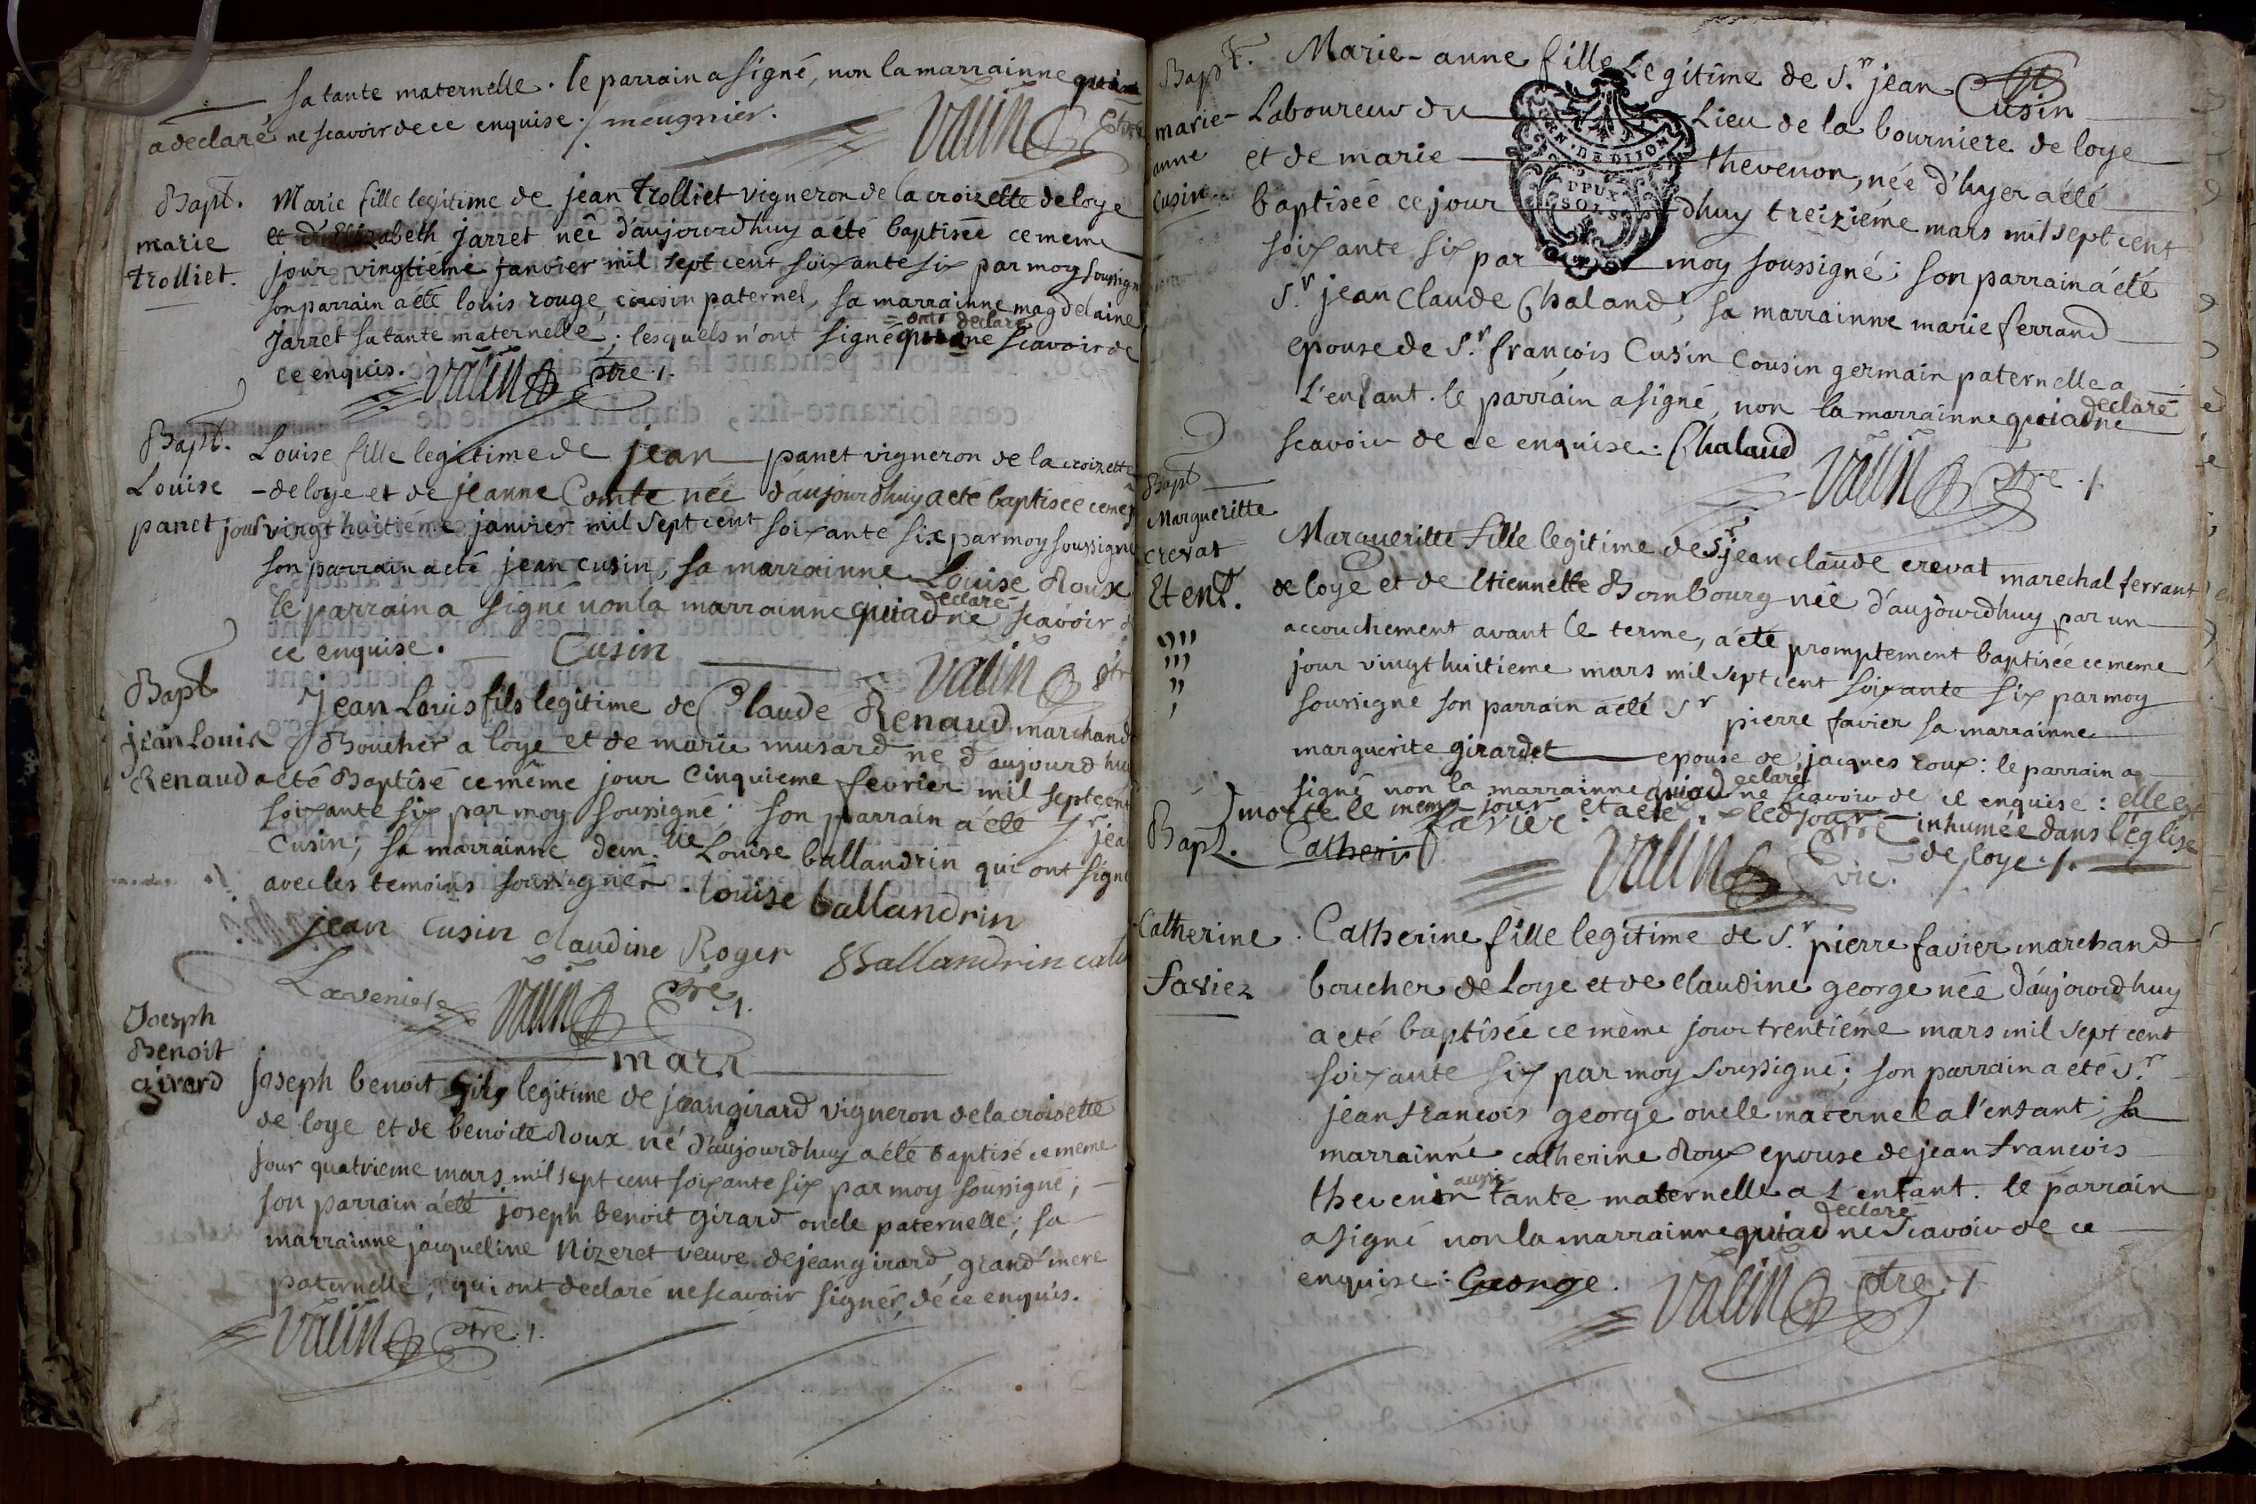 sa tante maternelle. le parrain a signé, non la marrainne qui a
a declaré ne scavoir de ce enquise ./ meugnier.
Valin ptre
Bapt.
marie
trolliet.
Marie fille legitime de jean trolliet vigneron de la croizette de loye
et d'Elizabeth jarret née d'aujourdhuy a eté baptisée ce meme
jour vingtieme janvier mil sept cent soixante six par moy soussigné
son parrain a eté louis rouge, cousin paternel, sa marrainne magdelaine
jarret sa tante maternelle; lesquels n'ont signé ont declaré ne scavoir de
ce enquis. Valin ptre ./.
Bapt.
Louise
panet
Louise fille legitime de jean panet vigneron de la croizette
de loye et de jeanne Comte née d'aujourdhuy a eté baptisée ce meme
jour vingt huitiéme janvier mil sept cent soixante six par moy soussigné
son parrain a eté jean cusin, sa marrainne Louise Roux
le parrain a signé non la marrainne qui a declaré ne scavoir de
ce enquise. Cusin Valin ptre
Bapt
jean Louis
Renaud
Jean Louis fils legitime de Claude Renaud marchand
Boucher a loye et de marie musard né d'aujourdhuy
a eté Baptisé ce même jour Cinquieme fevrier mil sept cent
soixante six par moy soussigné; son parrain a eté Sr jean
Cusin; sa marrainne dem.lle Louise ballandrin qui ont signé
avec les temoins soussignés. louise ballandrin
jean cusin claudine Roger Ballandrin
Valin ptre ./.
Joesph
Benoit
girard
mars
Joseph benoit fils legitime de jean girard vigneron de la croisette
de loye et de benoite Roux né d'aujourdhuy a eté baptisé ce meme
jour quatrieme mars mil sept cent soixante six par moy soussigné;
son parrain a eté joseph benoit girard oncle paternelle; sa
marrainne jacqueline Nizeret veuve de jean girard grand'mere
paternelle; qui ont declaré ne scavoir signer, de ce enquis.
Valin ptre ./.
Bapt.
marie-
anne
Cusin
Marie-anne fille legitime de S.r jean Cusin
Laboureur du Lieu de la bourniere de loye
et de marie thevenon, née d'hyer a eté
baptisée ce jourdhuy treiziéme mars mil sept cent
soixante six par moy soussigné; son parrain a eté
S.r jean Claude Chaland, sa marrainne marie ferrand
epouse de S.r françois Cusin Cousin germain paternelle a
L'enfant. le parrain a signé, non la marrainne qui a declaré ne
scavoir de ce enquise: Chaland
GEN. DE DIJON
DEUX SOLS
Valin ptre ./.
Bapt
Margueritte
crevat
Et ent.
Margueritte fille legitime de S.r jean claude crevat marechal ferrant
de loye et de Etiennette Bombourg née d'aujourdhuy par un
accouchement avant le terme, a eté promptement baptisée ce meme
jour vingt huitieme mars mil sept cent soixante six par moy
soussigné son parrain a eté Sr pierre favier sa marrainne
marguerite girardet epouse de jacques roux: le parrain a
signé non la marrainne qui a declaré ne scavoir de ce enquise: elle est
morte le meme jour et a eté led jour inhumée dans l'église
de loye ./.
favier
Valin ptre vic.
Bapt. Catheri
Catherine
faviez
Catherine fille legitime de S.r pierre favier marchand
boucher de Loye et de claudine george née d'aujourdhuy
a eté baptisée ce même jour trentiéme mars mil sept cent
soixante six par moy soussigné; son parrain a eté S.r
jean francois george oncle maternel a l'enfant; sa
marrainne catherine Roux epouse de jean francois
thevenin aussi tante maternelle a L'enfant. le parrain
a signé non la marrainne qui a declaré ne scavoir de ce
enquise: George. Valin ptre ./.